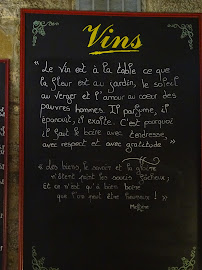 Vins
« Le Vin est à la table ce que
la fleur est au jardin, le soleil
au verger et l'amour au coeur des
pauvres hommes. Il parfume, il
épanouit, il exalte. C'est pourquoi
il faut le boire avec tendresse,
avec respect et avec gratitude »
« des biens, le savoir et la gloire
n'ôtent point les soucis fâcheux,
Et ce n'est qu'à bien boire
que l'on peut être heureux ! »
Molière